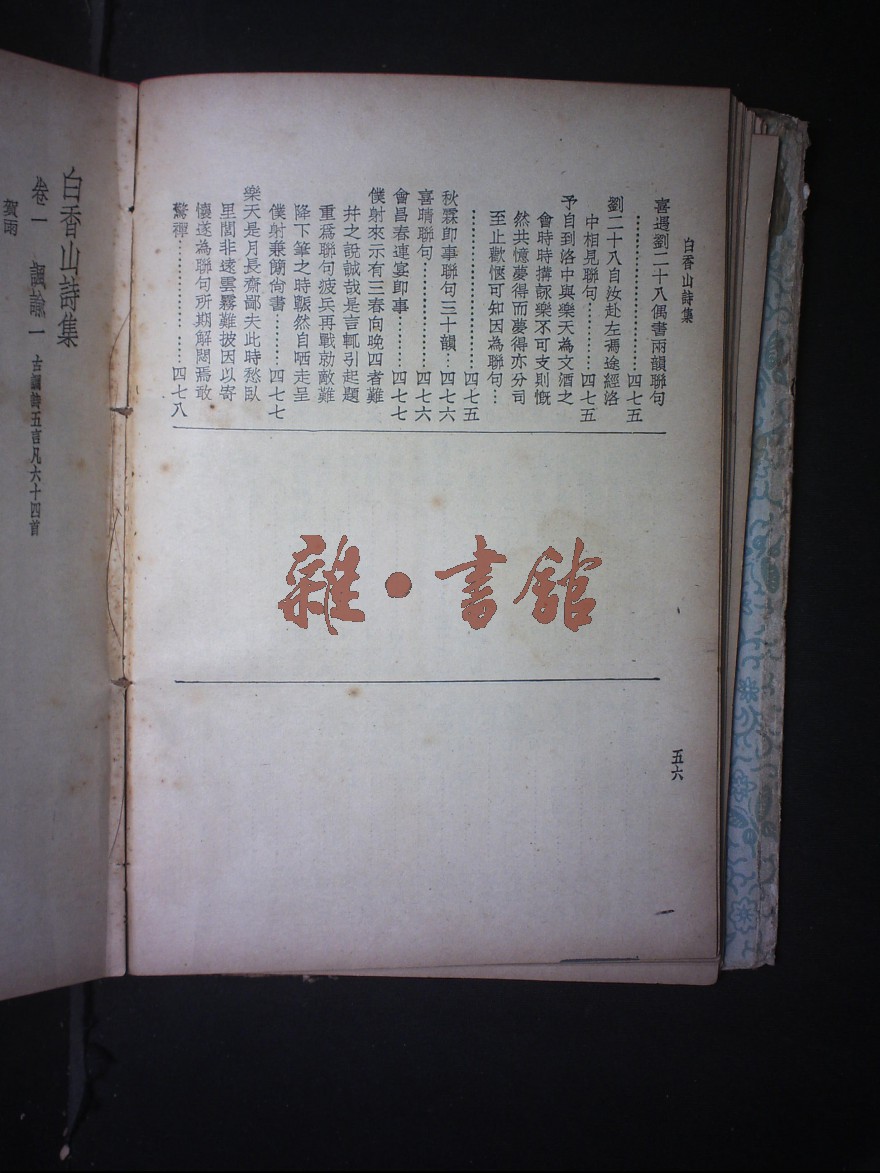 白香山詩集
喜遇劉二十八偶書兩韻聯句
…………………四七五
劉二十八自汝赴左馮途經洛
中相見聯句…………四七五
予自到洛中與樂天為文酒之
會時時搆詠樂不可支則慨
然共憶夢得而夢得亦分司
至止歡愜可知因為聯句…
…………………四七五
秋霖卽事聯句三十韻…四七六
喜晴聯句……………四七六
會昌春連宴卽事………四七七
僕射來示有三春向晚四者難
井之說誠哉是言輒引起題
重爲聯句疲兵再戰勍敵難
降下筆之時囅然自哂走呈
僕射兼簡尙書………四七七
樂天是月長齋鄙夫此時愁臥
里閭非遠雲霧難披因以寄
懷遂為聯句所期解悶焉敢
驚禪………………四七八
五六
雜·書館
白香山詩集
卷一 諷諭一 古調詩五言凡六十四首
賀雨